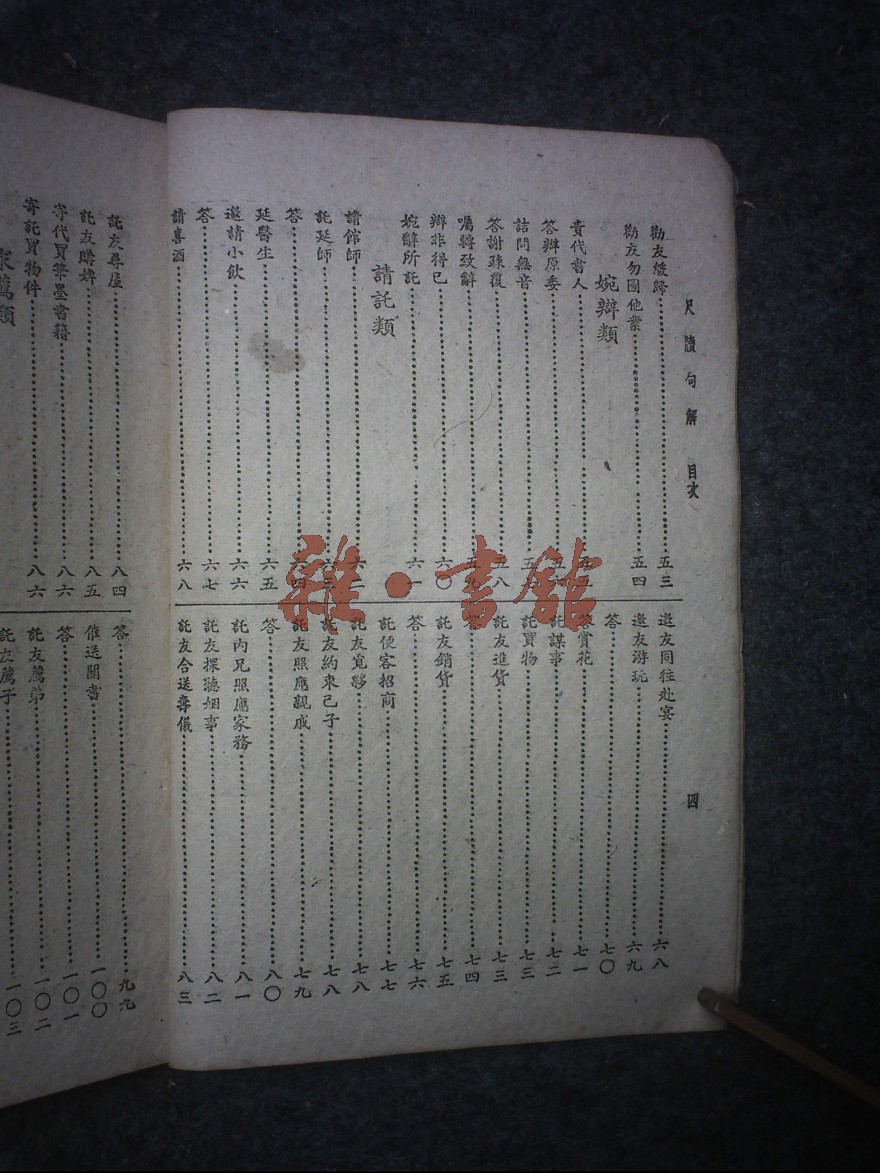 尺牘句解 目次
四
勸友緩歸 五三
勸友勿圖他業 五四
婉辯類
責代書人
答辯原委
詰問無音
答謝疎覆 五八
囑轉致辭
辯非得已 六〇
婉辭所託 六一
請託類
請館師 六二
託延師 六三
答 六四
延醫生 六五
邀請小飲 六六
答 六七
請喜酒 六八
邀友同往赴宴 六八
邀友游玩 六九
答 七〇
答賞花 七一
託謀事 七二
託買物 七三
託友進貨 七三
答 七四
託友銷貨 七五
答 七六
託便客招商 七七
託友覓夥 七八
託友約束己子 七八
託友照應親戚 七九
答 八〇
託內兄照應家務 八一
託友探聽姻事 八二
託友合送壽儀 八三
託友尋屋 八四
託友購婢 八五
寄代買筆墨書籍 八六
寄託買物件 八六
薦類
答 九九
催送關書 一〇〇
答 一〇一
託友薦弟 一〇二
託友薦子 一〇三
雜·書館